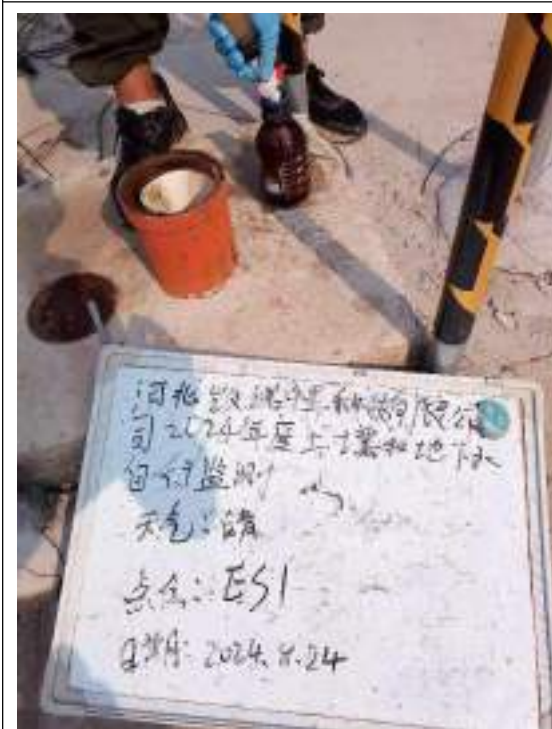 河北
有限公
司2024年度土壤和地下水
自行监测
天气：晴
点位：ES1
日期：2024.
24